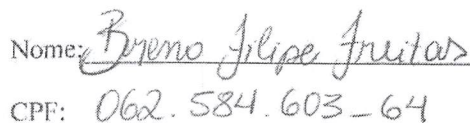 Nome: Breno Filipe Freitas
CPF: 062.584.603-64